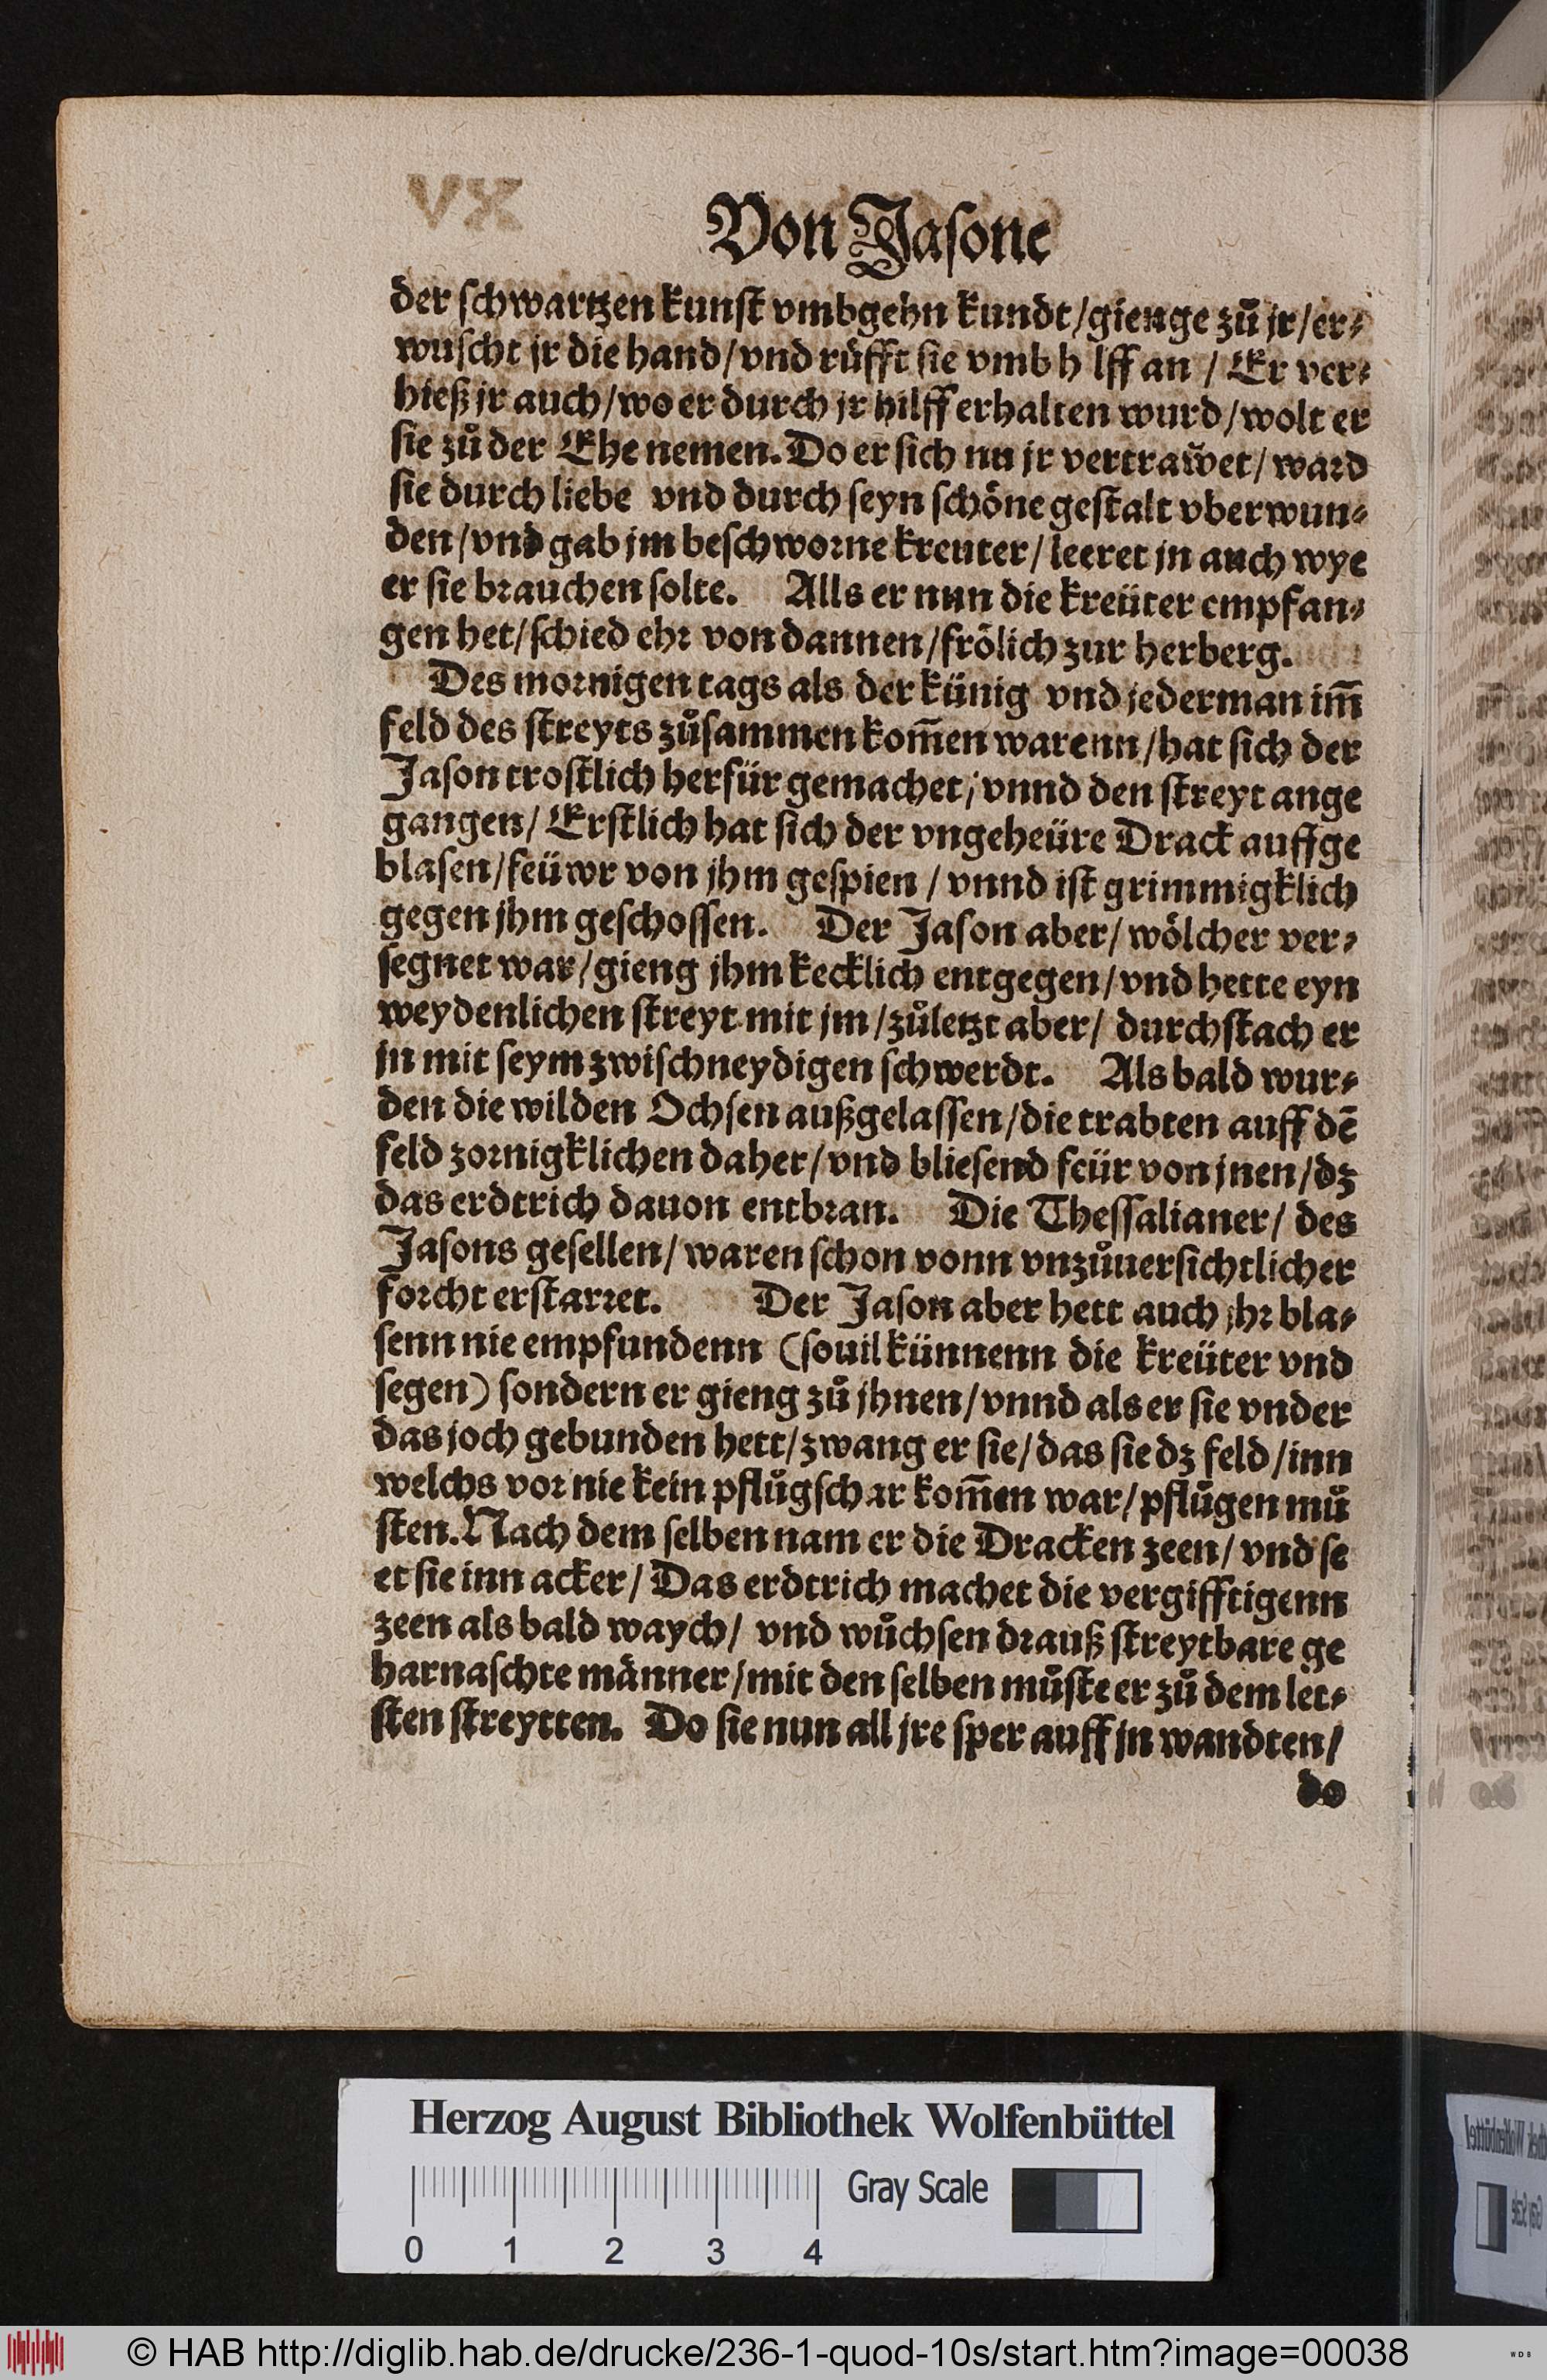 Von Jasone
der schwartzen kunst vmbgehn kundt/gienge zů jr/er⸗
wuscht jr die hand/vnd růfft sie vmb h lff an / Er ver⸗
hieß jr auch/wo er durch jr hilff erhalten wurd/wolt er
sie zů der Ehe nemen. Do er sich nu jr vertrawet/ ward
sie durch liebe vnd durch seyn schöne gestalt vberwun⸗
den/vnd gab jm beschworne kreuter/ leeret jn auch wye
er sie brauchen solte. Alls er nun die kreüter empfan⸗
gen het/schied ehr von dannen/frölich zur herberg.
Des mornigen tags als der künig vnd jederman im̃
feld des streyts zůsammen kom̃en warenn/hat sich der
Jason trostlich herfür gemachet/ vnnd den streyt ange
gangen/ Erstlich hat sich der vngeheüre Drack auffge
blasen/feüwr von jhm gespien / vnnd ist grimmigklich
gegen jhm geschossen. Der Jason aber/ wölcher ver⸗
segnet war/gieng jhm kecklich entgegen/vnd hette eyn
weydenlichen streyt mit jm/zůletzt aber/ durchstach er
jn mit seym zwischneydigen schwerdt. Als bald wur⸗
den die wilden Ochsen außgelassen/die trabten auff dẽ
feld zornigklichen daher/vnd bliesend feür von jnen/dz
das erdtrich dauon entbran. Die Thessalianer/ des
Jasons gesellen/ waren schon vonn vnzůuersichtlicher
forcht erstarret. Der Jason aber hett auch jhr bla⸗
senn nie empfundenn (souil künnenn die kreüter vnd
segen) sondern er gieng zů jhnen/vnnd als er sie vnder
das joch gebunden hett/zwang er sie/das sie dz feld/inn
welchs vor nie kein pflůgschar kom̃en war/pflůgen mů
sten. Nach dem selben nam er die Dracken zeen/ vnd se
et sie inn acker/ Das erdtrich machet die vergifftigenn
zeen als bald waych/ vnd wůchsen drauß streytbare ge
harnaschte männer/mit den selben můste er zů dem let⸗
sten streytten. Do sie nun all jre sper auff jn wandten/
do
Herzog August Bibliothek Wolfenbüttel
Gray Scale
0 1 2 3 4
© HAB http://diglib.hab.de/drucke/236-1-quod-10s/start.htm?image=00038